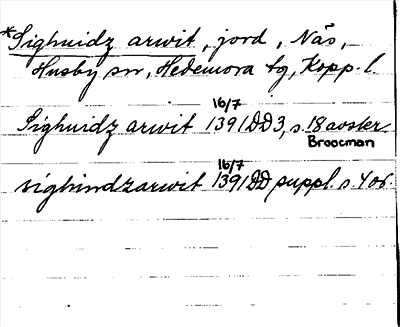 *Sighuidz arwit, jord, Näs,
Husby sn, Hedemora tg, Kopp. l.
16/7
Sighuidz arwit 1391 DD3, s. 18 avskr.
Broocman
16/7
sighindzarwit 1391 DD suppl. s. 406.